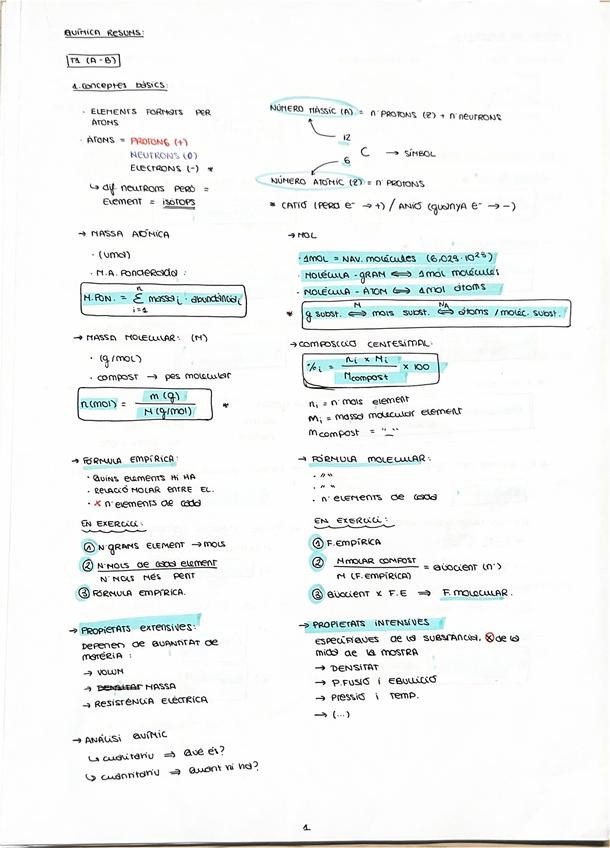 QUÍMICA RESUMS:
T1 (A-B)
1. Conceptes bàsics:
· ELEMENTS FORMATS PER
ÀTOMS
· ÀTOMS = PROTONS (+)
NEUTRONS (0)
ELECTRONS (-) *
↳ dif neutrons però =
Element = isòtops
NÚMERO MÀSSIC (A) = nº PROTONS (Z) + nº NEUTRONS
12
C → SÍMBOL
6
NÚMERO ATÒMIC (Z) = nº PROTONS
* CATIÓ (PERD e⁻ → +) / ANIÓ (guanya e⁻ → -)
→ MASSA ATÒMICA
· (uma)
· M.A. Ponderada:
M.PON. = Σ massa i · abundància i
n
i=1
→ MOL
· 1mol = NAV. molècules (6,023·10²³)
· MOLÈCULA-GRAM ⟺ 1mol molècules
· MOLÈCULA-ÀTOM ⟺ 1mol àtoms
* g subst. ⟺ mols subst. ⟺ àtoms/molèc. subst.
M NA
→ MASSA MOLECULAR: (M)
· (g/mol)
· compost → pes molecular
n(mol) = m (g) / M (g/mol) *
→ COMPOSICIÓ CENTESIMAL:
%i = ni × Mi / Mcompost × 100
ni = nº mols element
Mi = massa molecular element
mcompost = "_"
→ FÓRMULA EMPÍRICA:
· QUINS ELEMENTS HI HA
· RELACIÓ MOLAR ENTRE EL.
· X nº elements de cada
EN EXERCICI:
① Nº GRAMS ELEMENT → MOLS
② Nº MOLS DE cada ELEMENT
Nº MOLS MÉS PETIT
③ FÓRMULA EMPÍRICA.
→ FÓRMULA MOLECULAR:
· ""
· ""
· nº ELEMENTS DE CADA
EN EXERCICI:
① F.EMPÍRICA
② M MOLAR COMPOST / M (F.EMPÍRICA) = QUOCIENT (nº)
③ QUOCIENT × F.E ⟹ F.MOLECULAR.
→ PROPIETATS EXTENSIVES:
DEPENEN DE QUANTITAT DE
MATÈRIA:
→ VOLUM
→ DENSITAT MASSA
→ RESISTÈNCIA ELÈCTRICA
→ PROPIETATS INTENSIVES:
ESPECÍFIQUES DE LA SUBSTÀNCIA, X DE LA
MIDA DE LA MOSTRA
→ DENSITAT
→ P.FUSIÓ i EBULLICIÓ
→ PRESSIÓ i TEMP.
→ (...)
→ ANÀLISI QUÍMIC
↳ cualitatiu ⟹ Què és?
↳ cuantitatiu ⟹ Quant hi ha?
1